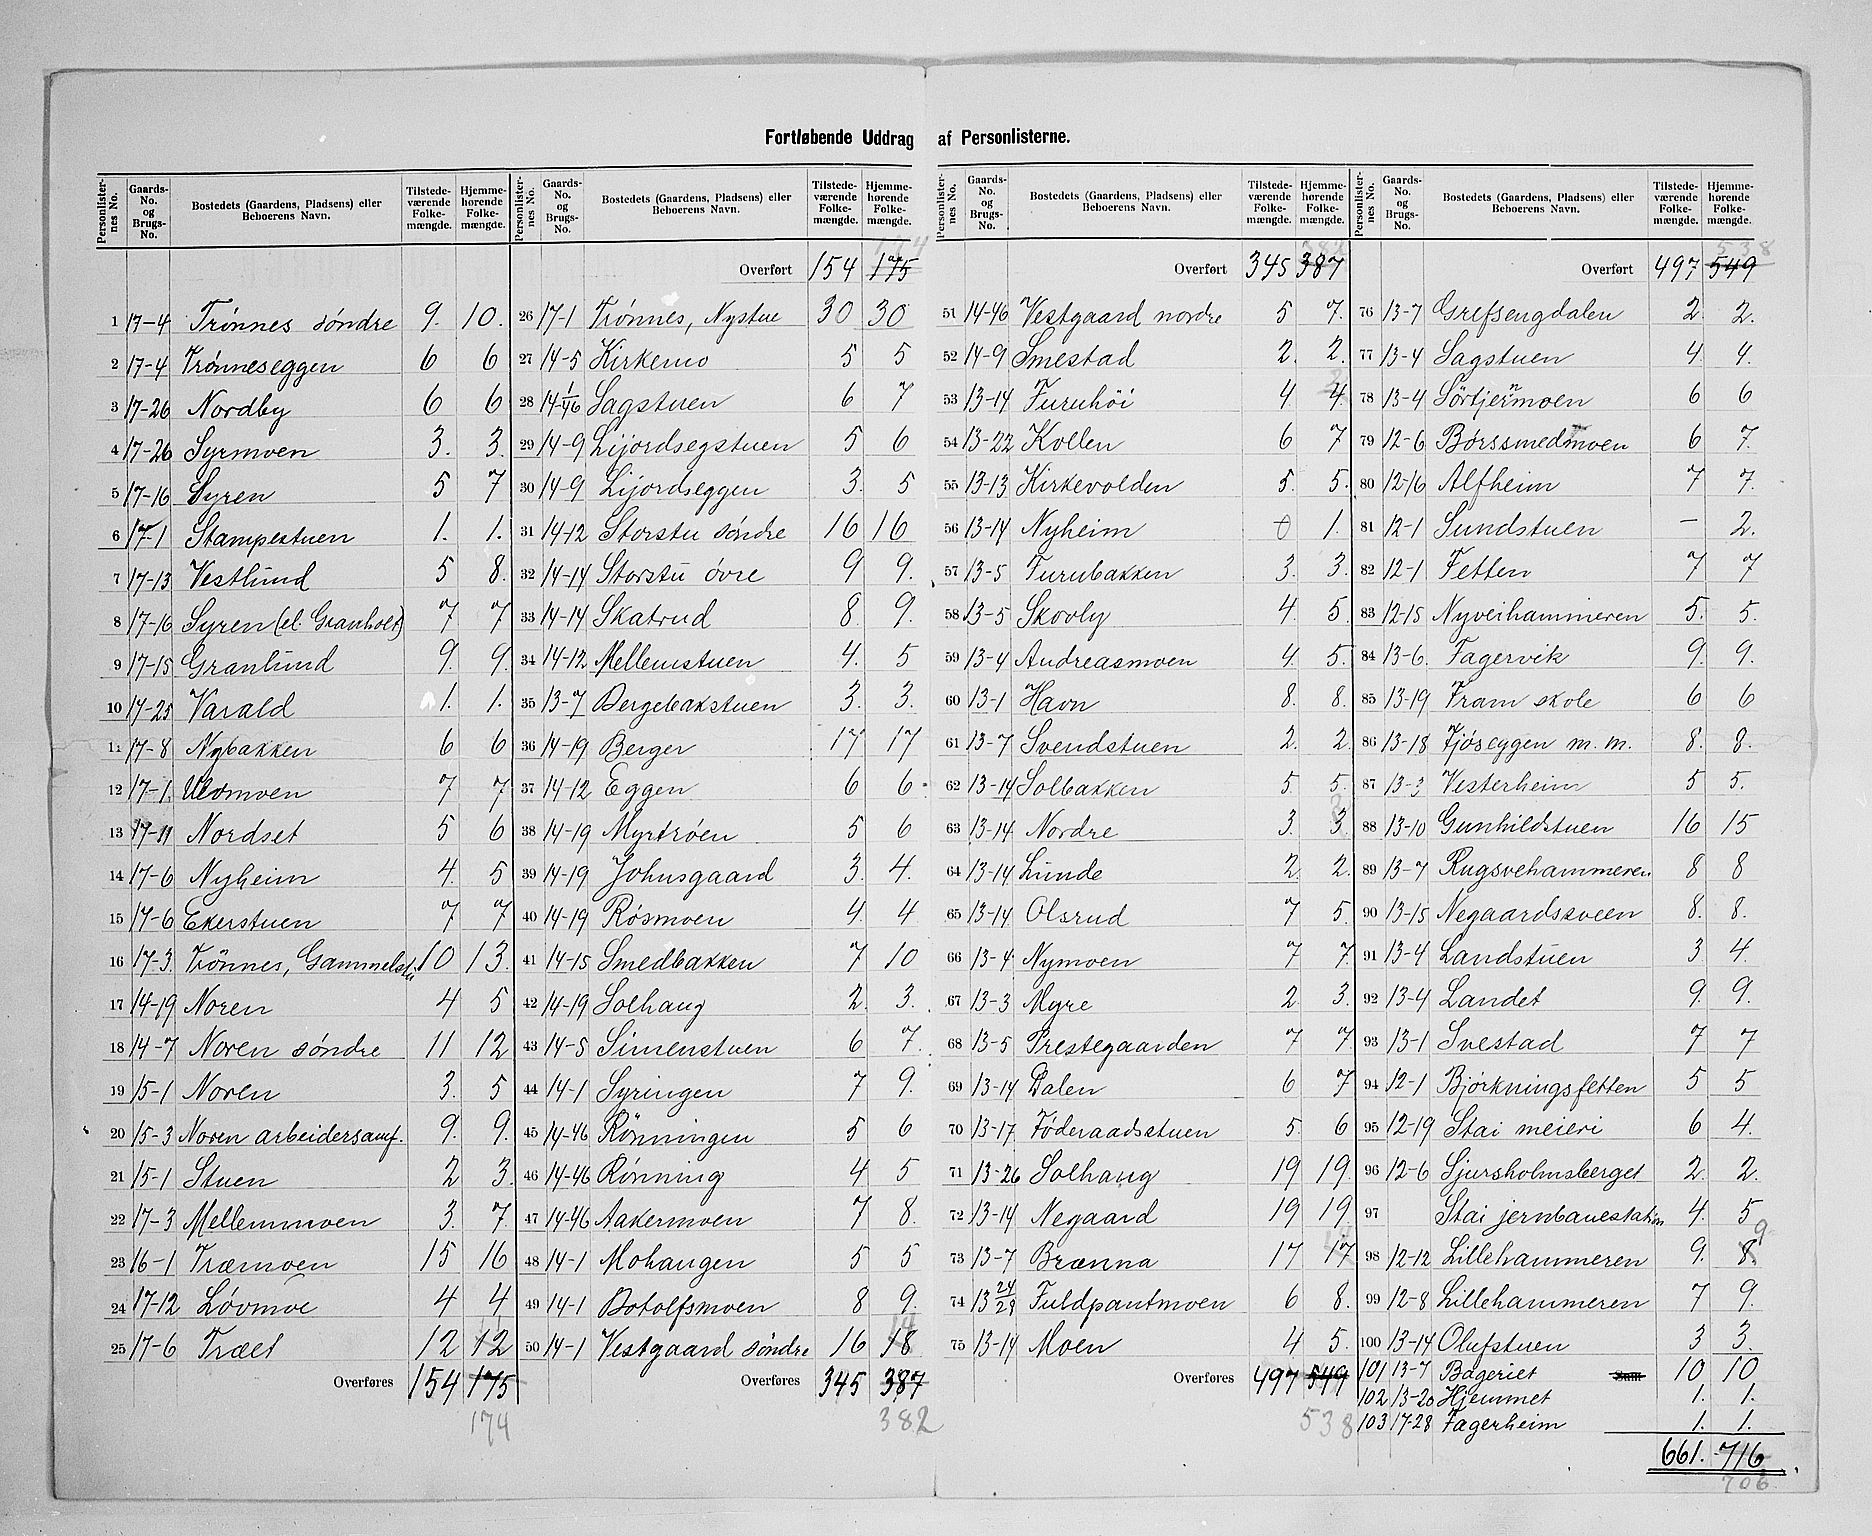 Fortløbende Uddrag af Personlisterne.
Personlisternes No. | Gaards-No. og Brugs-No. | Bostedets (Gaardens, Pladsens) eller Beboerens Navn. | Tilstedeværende Folkemængde. | Hjemmehørende Folkemængde.
1 17-4 Trønnes søndre 9. 10.
2 17-4 Trønneseggen 6 6
3 17-26 Nordby 6 6
4 17-26 Syrmoen 3. 3.
5 17-16 Syren 5 7
6 17-1 Stampestuen 1. 1.
7 17-13 Vestlund 5 8.
8 17-16 Syren (el. Granholt) 7 7
9 17-15 Granlund 9. 9.
10 17-25 Varald 1. 1.
11 17-8 Nybakken 6 6
12 17-1. Ulvmoen 7 7
13 17-11 Nordset 5 6
14 17-6 Nyheim 4. 5
15 17-6 Ekerstuen 7 7
16 17-3. Trönnes, Gammelstu 10 13.
17 14-19 Noren 4 5
18 14-7 Noren søndre 11 12
19 15-1 Noren 3. 5
20 15-3 Noren arbeidersamf. 9. 9.
21 15-1 Stuen 2 3.
22 17-3 Mellemmoen 3. 7.
23 16-1 Træmoen 15 16
24 17-12 Løvmoe 4 4
25 17-6 Træet 12 12
Overføres 154 175
174
Personlisternes No. | Gaards-No. og Brugs-No. | Bostedets (Gaardens, Pladsens) eller Beboerens Navn. | Tilstedeværende Folkemængde. | Hjemmehørende Folkemængde.
174
Overført 154 175
26 17-1 Trønnes, Nystue 30 30
27 14-5 Kirkemo 5 5
28 14-1/46 Sagstuen 6 7
29 14-9 Lijordsegstuen 5 6
30 14-9 Lijordseggen 3. 5
31 14-12 Storstu søndre 16 16
32 14-14 Storstu øvre 9 9.
33 14-14 Skatrud 8. 9.
34 14-12 Mellemstuen 4. 5
35 13-7 Bergebakstuen 3. 3.
36 14-19 Berger 17 17
37 14-12 Eggen 6 6
38 14-19 Myrtrøen 5 6
39 14-19 Johnsgaard 3. 4.
40 14-19 Røsmoen 4. 4
41 14-15 Smedbakken 7 10
42 14-19 Solhaug 2. 3.
43 14-5 Simenstuen 6 7.
44 14-1 Syringen 7 9.
45 14-46 Rønningen 5 6
46 14-46 Rønning 4 5
47 14-46 Aakermoen 7 8.
48 14-1 Mohaugen 5 5
49 14-1 Botolfsmoen 8 9.
50 14-1 Vestgaard søndre 16 18
Overføres 345 387
382
Personlisternes No. | Gaards-No. og Brugs-No. | Bostedets (Gaardens, Pladsens) eller Beboerens Navn. | Tilstedeværende Folkemængde. | Hjemmehørende Folkemængde.
382
Overført 345 387
51 14-46 Vestgaard nordre 5 7.
52 14-9 Smestad 2. 2.
53 13-14 Furuhöi 4. 4.
54 13-22 Kollen 6 7
55 13-13 Kirkevolden 5. 5.
56 13-14 Nyheim 0 1.
57 13-5 Furubakken 3. 3.
58 13-5 Skovly 4. 5
59 13-4 Andreasmoen 4. 5.
60 13-1 Havn 8. 8.
61 13-7 Svendstuen 2. 2.
62 13-14 Solbakken 5. 5.
63 13-14. Nordre 3. 3
64 13-14 Lunde 2. 2.
65 13-14. Olsrud 7 5
66 13-4. Nymoen 7 7.
67 13-3 Myre 2. 3.
68 13-5 Prestegaarden 7 7
69 13-14 Dalen 6 7
70 13-17 Föderaadsstuen 5. 6
71 13-26 Solhaug 19 19.
72 13-14 Negaard 19 19.
73 13-7 Brænna 17 17
74 13 24/29 Fuldpantmoen 6 8.
75 13-14 Moen 4 5.
Overføres 497 549
538
Personlisternes No. | Gaards-No. og Brugs-No. | Bostedets (Gaardens, Pladsens) eller Beboerens Navn. | Tilstedeværende Folkemængde. | Hjemmehørende Folkemængde.
538
Overført 497 549
76 13-7 Grefsengdalen 2. 2.
77 13-4 Sagstuen 4. 4.
78 13-4 Sörtjernmoen 6 6
79 12-6 Børssmedmoen 6 7.
80 12-16 Alfheim 7 7.
81 12-1 Sundstuen – 2.
82 12-1 Fetten 7 7
83 12-15 Nyveihammeren 5. 5.
84 13-6. Fagervik 9. 9.
85 13-19 Fram skole 6 6
86 13-18 Tjøseggen m. m. 8. 8.
87 13-3 Vesterheim 5 5.
88 13-10 Gunhildstuen 16 15
89 13-7 Rugsvehammeren 8 8
90 13-15 Negaardssveen 8. 8.
91 13-4 Landstuen 3 4.
92 13-4 Landet 9. 9.
93 13-1 Svestad 7 7
94 12-1 Bjørkningsfetten 5 5
95 12-19 Stai meieri 6 4.
96 12-6 Sjursholmsberget 2. 2.
97 Stai jernbanestation 4. 5
98 12-12 Lillehammeren 9. 8. 9
99 12-8 Lillehammeren 7 9.
100 13-14 Olufstuen 3 3.
101 13-7 Bageriet Sum 10 10
102 13-20 Hjemmet 1. 1.
103 17-28 Fagerheim 1. 1.
661. 716
706.